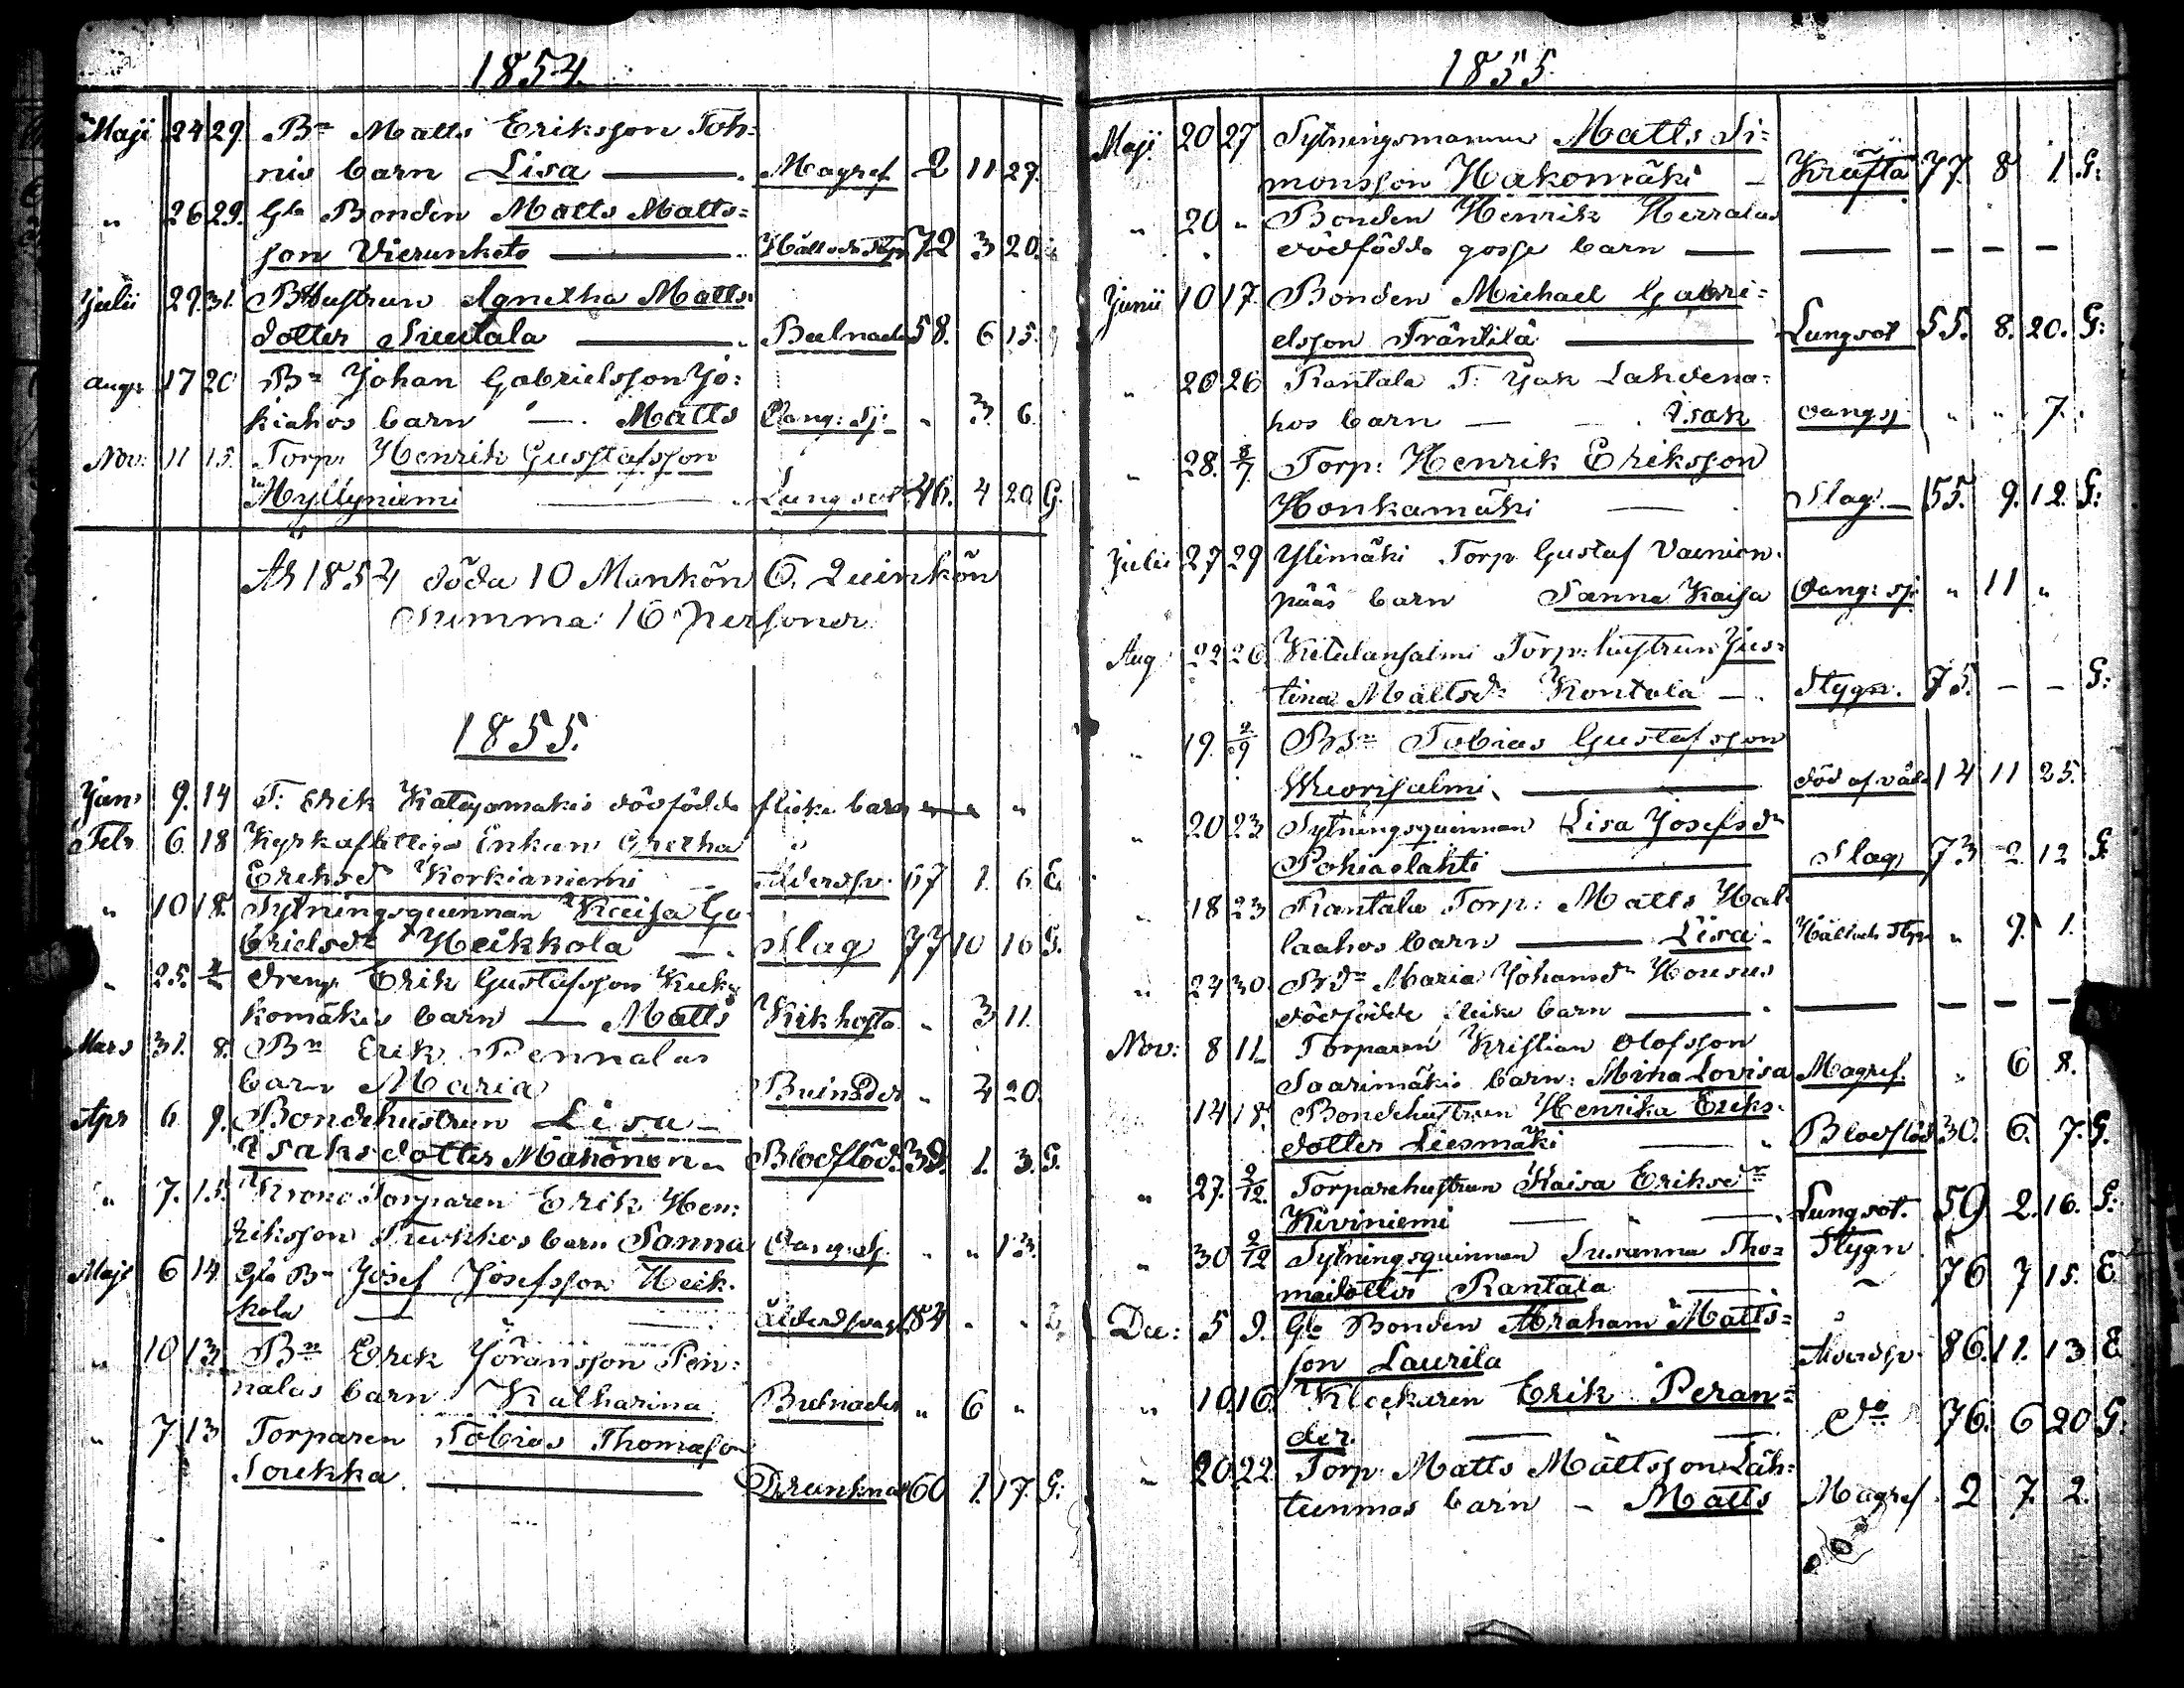 1854.
Maji 24 29. Bn Matts Eriksson Toh=
nis barn Lisa Magref 2 11 27.
" 26 29. Gla Bonden Matts Matts=
son Vierunketo Håll och Styn 72 3 20.
Julii 29. 31. BHustrun Agnetha Matts=
dotter Siuulala Bulnader 58. 6 15.
Aug: 17 20 Bn Johan Gabrielsson Jo=
kiahos barn — Matts Oang: Sj: " 3. 6.
Nov: 11 15. Torp: Henrik Gustafsson
Myllyniemi Lungsot 46. 4 20 G.
År 1854 döda 10 Mankön 6. Quinkön
Summa: 16 personer
1855.
Jan: 9. 14 T: Erik Katajamäkis dödfödda flicke barn " "
Febr 6. 18 Kyrkofattiga Enkan Gretha
Eriksdr Korkianiemi Ålderdsv. 67 1. 6. E.
" 10 18. Sytningsquinnan Kaisa Ga=
brielsdr Heikkola — Slag 77 10 16 G.
" 25. Dreng: Erik Gustafsson Kuk=
komäkis barn — Matts Kikhosta " 3 11.
Mars 31. 8. Bn Erik Pennalas
barn Maria Bulnader " 4 20.
Apr 6 9. Bondehustrun Lisa
Isaksdotter Mahönen Blodflöd. 39. 1. 3. G.
" 7. 15. Krono Torparen Erik Hen=
riksson Truukkos barn Sanna Oang: Sj. " " 13.
Maji 6 14. Gla Bn Josef Josefsson Heik=
kola — Ålderdsvagh. 84 " "
" 10 13 Bn Erik Jöransson Pen=
nalas barn Katharina Bulnader " 6 "
" 7 13 Torparen Tobias Thomasson
Soukka. Drunknat 60 1. 17. G:
1855
Maji 20 27 Sytningsmannen Matts Si=
monsson Hakomäki — Kräfta 77. 8 1. G:
" 20 " Bonden Henrik Herralas
dödfödde gosse barn — — — — —
Junii 10 17. Bonden Michael Gabri=
elsson Träntilä Lungsot 55. 8. 20. G:
" 20 26 Rantala T: Jak Lahdena=
hos barn — Isak Oang sj. " " 7.
" 28. 2/7 Torp: Henrik Eriksson
Honkamäki — Slag. — 55. 9. 12. G:
Julii 27 29 Ylimäki Torp Gustaf Vainion=
pääs barn Sanna Kaisa Oang: sj: " 11 "
Aug 22 26. Kutulansalmi Torp: hustrun Jus=
tina Mattsdr Kontola — Stygn. 75. — — G:
" 19. 2/9 BSn Tobias Gustafsson
Weorisalmi. död af våda 14 11 25.
" 20 23 Sytningsquinnan Lisa Josefsdr
Pohiaslahti Slag 73 2 12 G.
" 18 23 Rantala Torp: Matts Hal=
laahos barn — Lisa. Håll och Styn " 9. 1.
" 24 30. BDr Maria Johansdr Housus
dödfödde flicke barn — — — — —
Nov: 8 11 Torparen Kristian Olofsson
Saarimäkis barn: Mina Lovisa Magref. " 6 8.
14 18. Bondehustrun Henrika Eriks=
dotter Liesmäki — " Blodflöd 30. 6. 7. G.
" 27. 2/12. Torparehustrun Kaisa Eriksdr
Kiviniemi — " — Lungsot. 59 2. 16. G.
" 30 2/12 Sytningsquinnan Susanna Tho= Stygn
madotter Rantala 76 7 15. E
Dec: 5 9. Gla Bonden Abraham Matts=
son Laurila Ålderdsv. 86. 11. 13 E
" 10. 16. Klockaren Erik Peran=
der. — " — do 76. 6 20 G.
" 20. 22 Torp: Matts Mattsson Läh=
teenmas barn — Matts Magref. 2 7. 2.